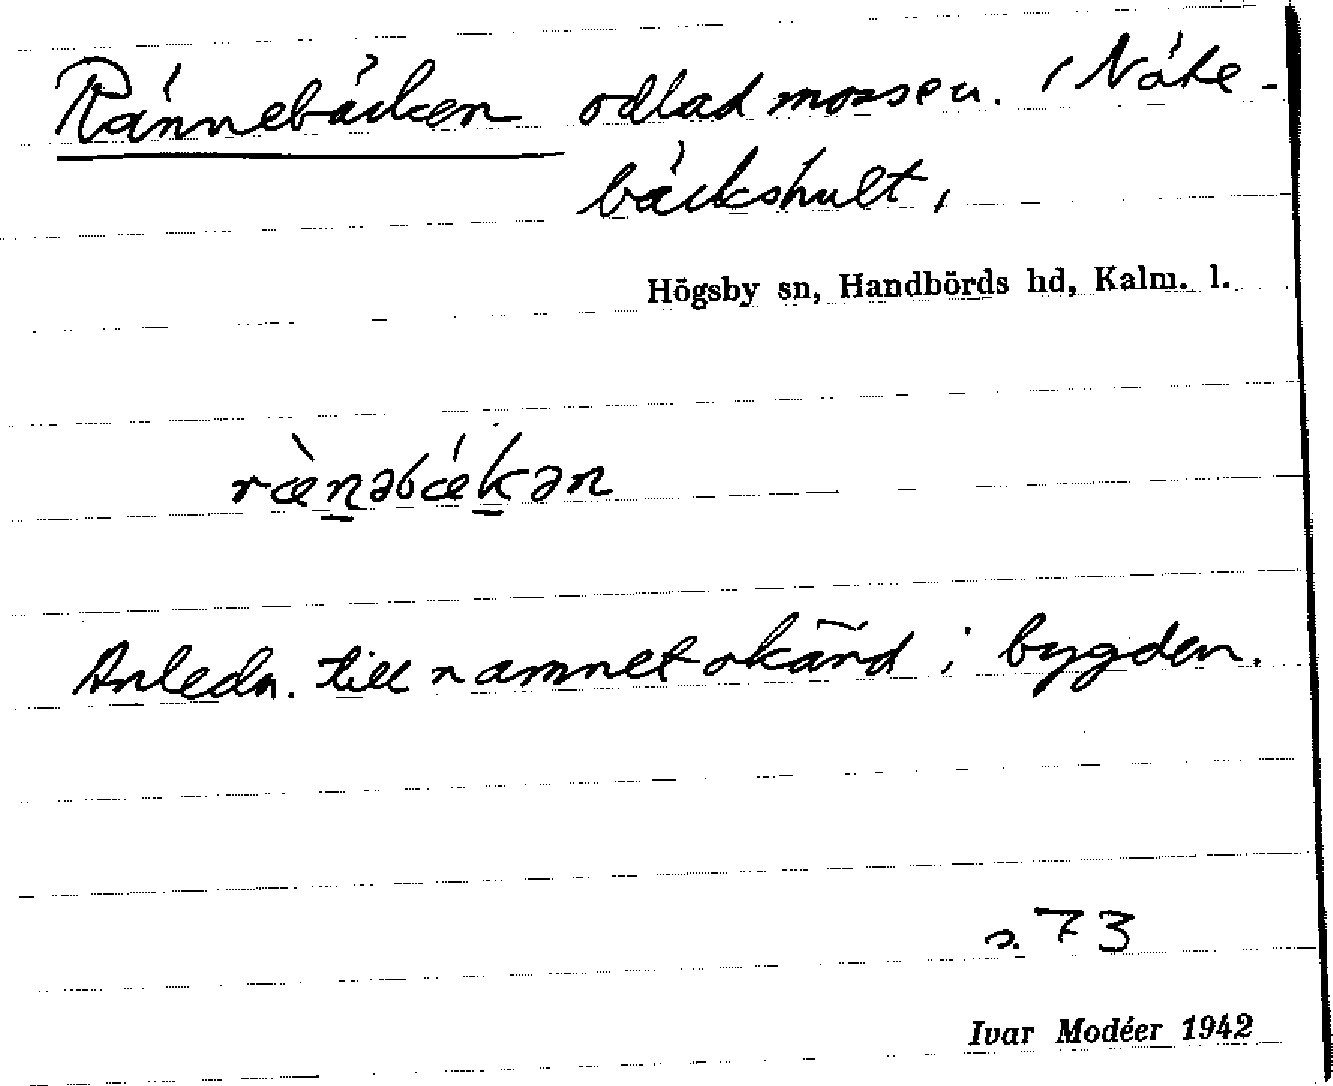 Rännebäcken odlad mossen. i Näke-
bäckshult,
Högsby sn, Handbörds hd, Kalm. l.
ræ̀nəbǽkən
Anledn. till namnet okänd i bygden.
s. 73
Ivar Modéer 1942